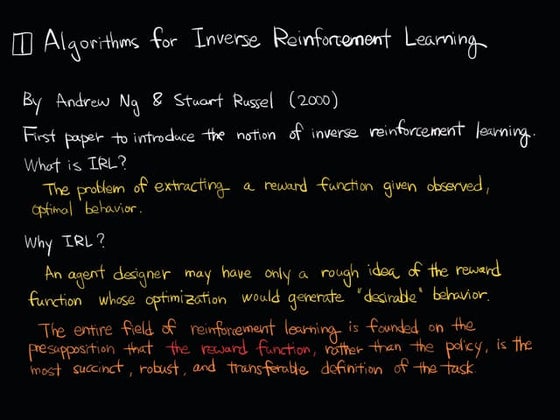 1 Algorithms for Inverse Reinforcement Learning
By Andrew Ng & Stuart Russel (2000)
First paper to introduce the notion of inverse reinforcement learning.
What is IRL?
The problem of extracting a reward function given observed,
optimal behavior.
Why IRL?
An agent designer may have only a rough idea of the reward
function whose optimization would generate "desirable" behavior.
The entire field of reinforcement learning is founded on the
presupposition that the reward function, rather than the policy, is the
most succinct, robust, and transferable definition of the task.